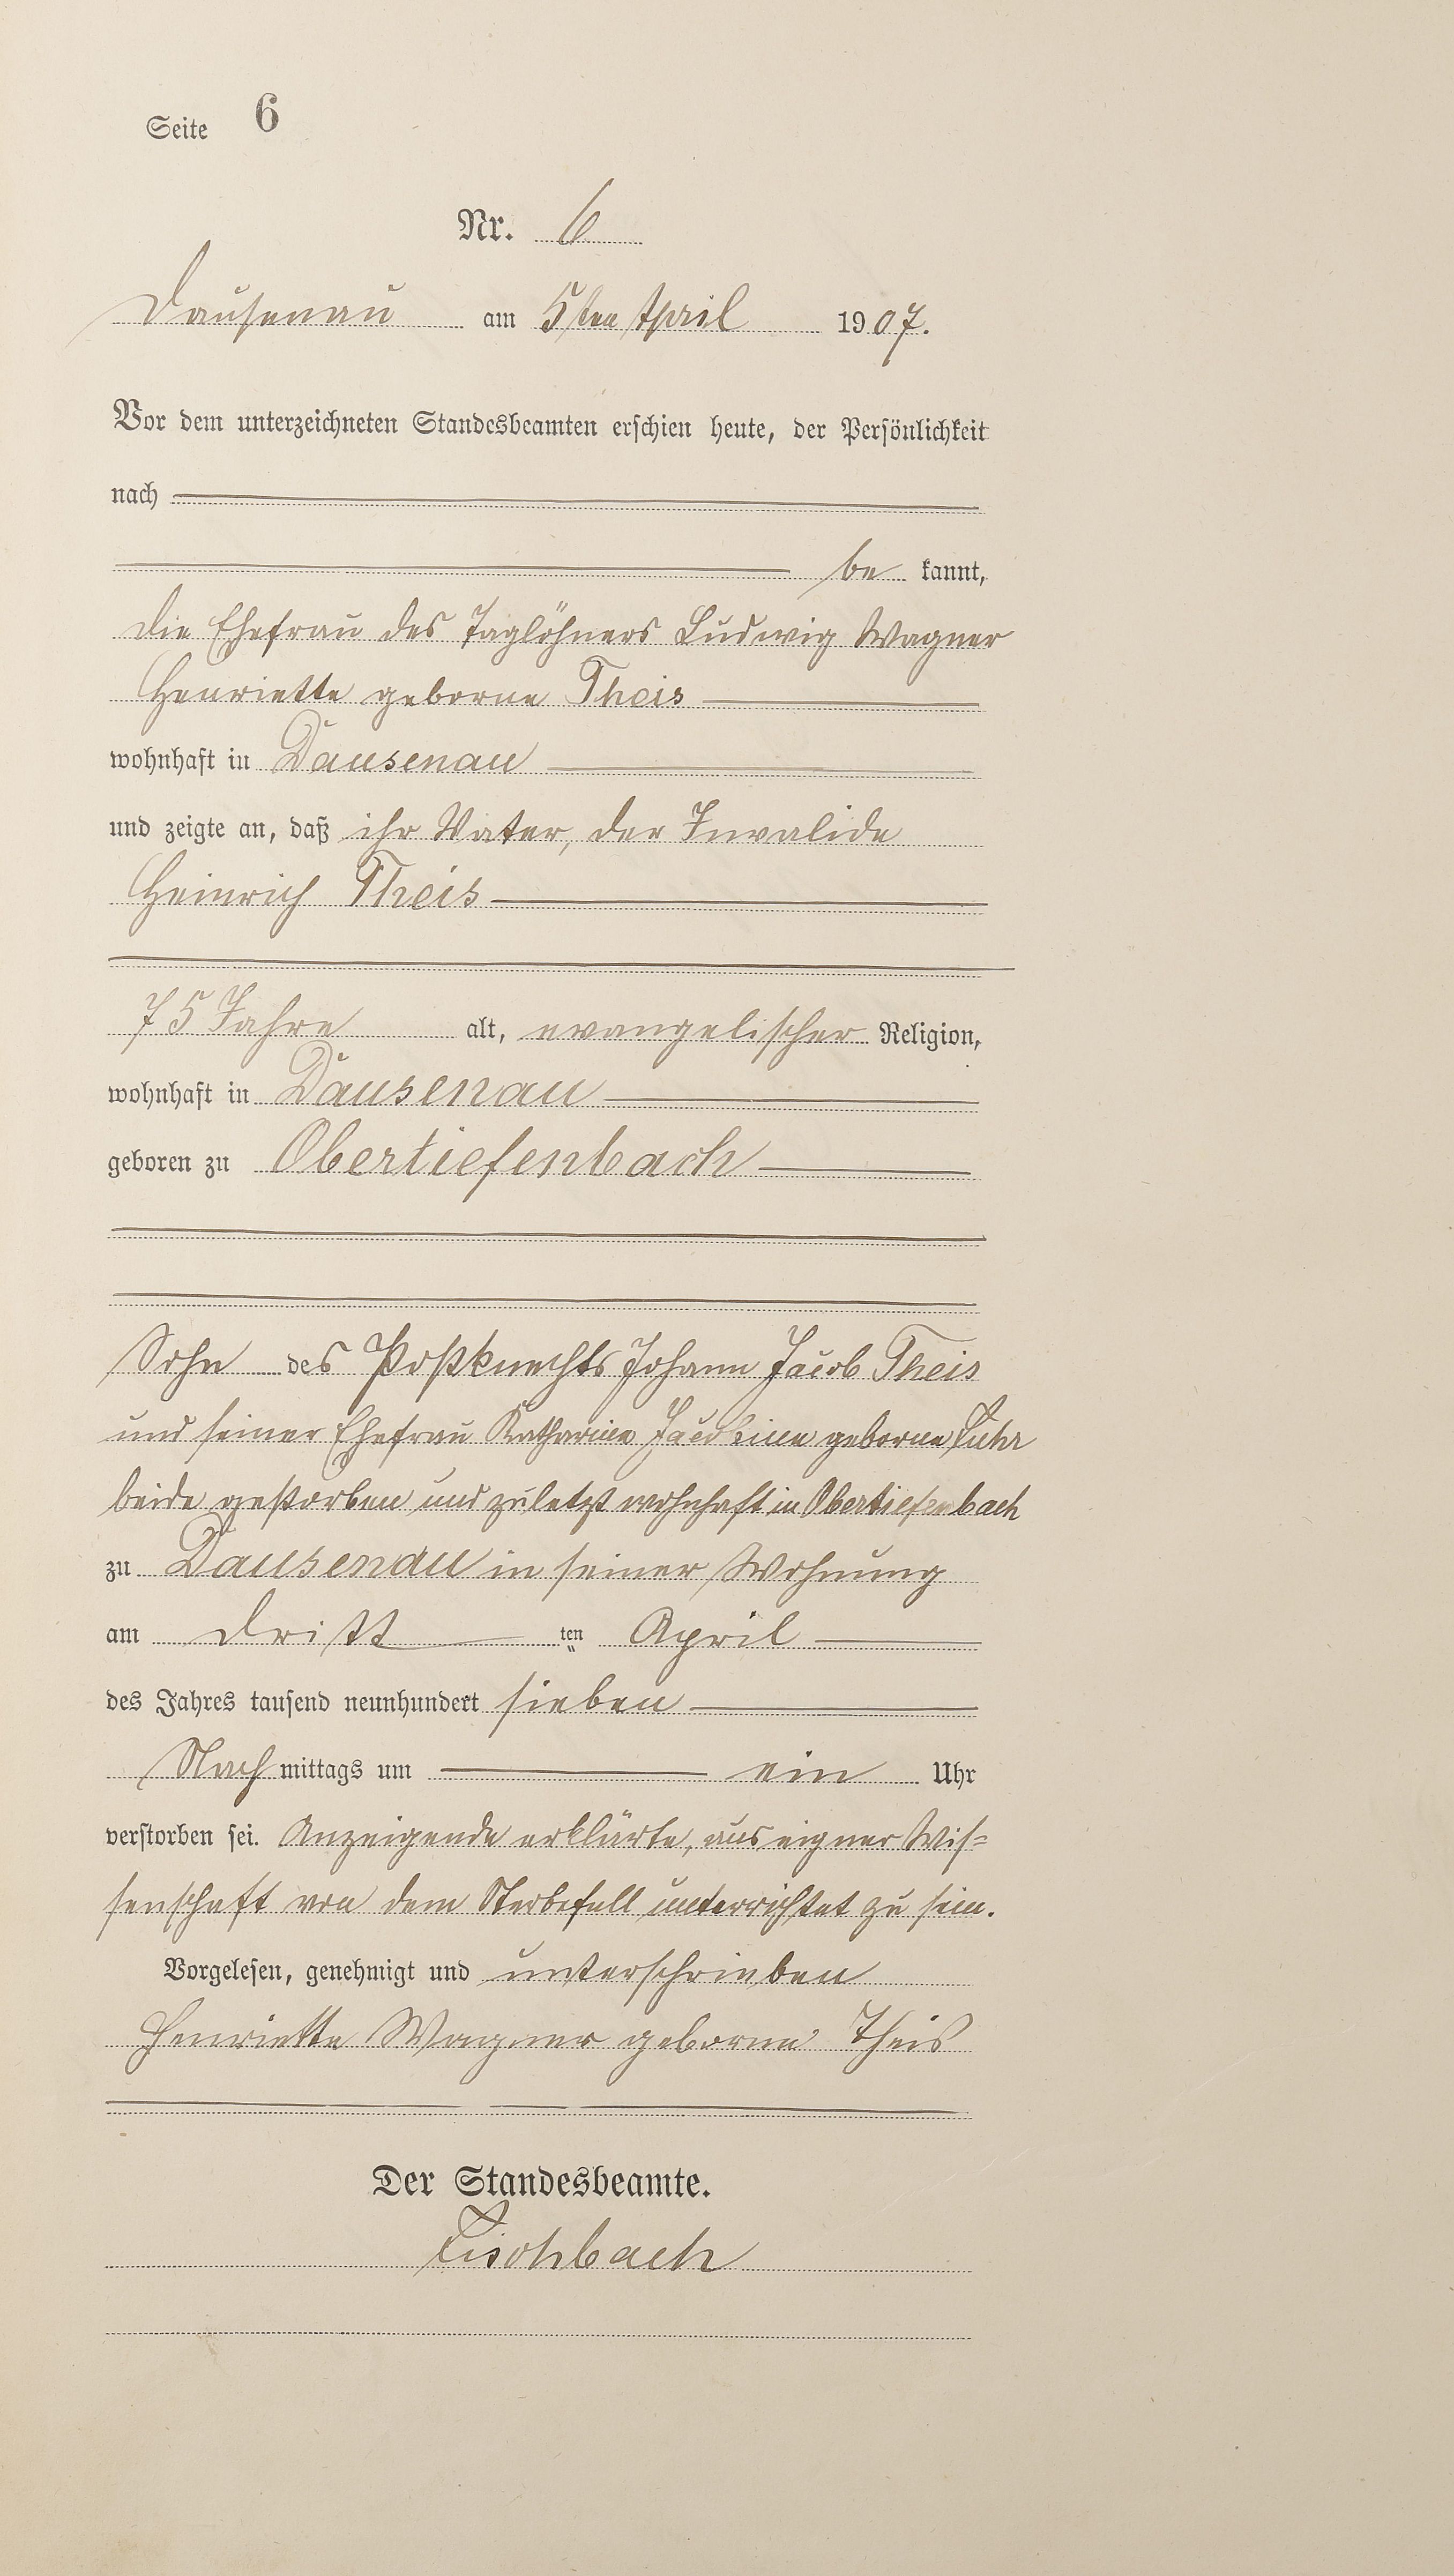 Seite 6
Nr. 6
Dausenau am 5ten April 1907.
Vor dem unterzeichneten Standesbeamten erschien heute, der Persönlichkeit
nach
be kannt,
die Ehefrau des Taglöhners Ludwig Wagner
Henriette geborne Theis
wohnhaft in Dausenau
und zeigte an, daß ihr Vater, der Invalide
Heinrich Theis
75 Jahre alt, evangelischer Religion,
wohnhaft in Dausenau
geboren zu Obertiefenbach
Sohn des Postknechts Johann Jacob Theis
und seiner Ehefrau Katharine Jacobine geborne Fuhr
beide gestorben und zuletzt wohnhaft in Obertiefenbach
zu Dausenau in seiner Wohnung
am dritt ten April
des Jahres tausend neunhundert sieben
Nach mittags um ein Uhr
verstorben sei. Anzeigende erklärte, aus eigner Wis=
senschaft von dem Sterbefall unterrichtet zu sein.
Vorgelesen, genehmigt und unterschrieben
Henriette Wagner geborne Theis
Der Standesbeamte.
Fischbach